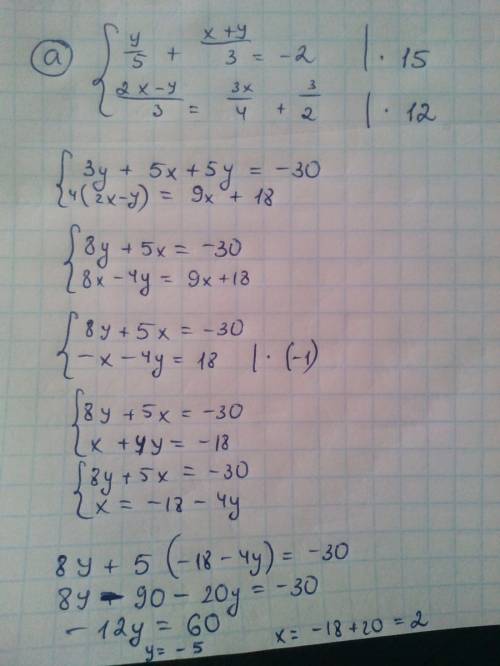 a) { y/5 + (x+y)/3 = -2 | · 15
{ (2x-y)/3 = 3x/4 + 3/2 | · 12
{ 3y + 5x + 5y = -30
{ 4(2x-y) = 9x + 18
{ 8y + 5x = -30
{ 8x - 4y = 9x + 18
{ 8y + 5x = -30
{ -x - 4y = 18 | · (-1)
{ 8y + 5x = -30
{ x + 4y = -18
{ 8y + 5x = -30
{ x = -18 - 4y
8y + 5(-18 - 4y) = -30
8y - 90 - 20y = -30
-12y = 60
y = -5 x = -18 + 20 = 2